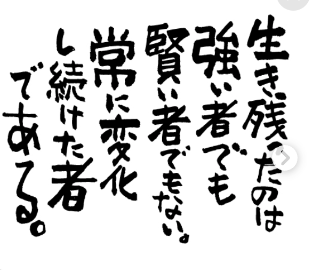 生き残ったのは
強い者でも
賢い者でもない。
常に変化
し続けた者
である。